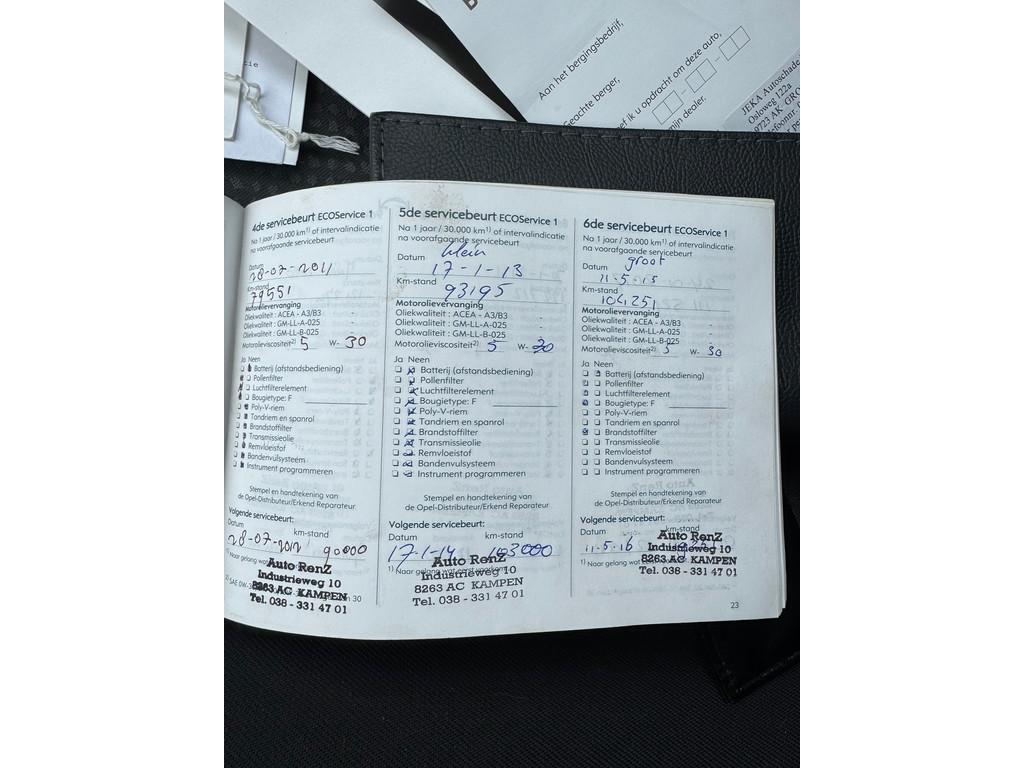 cie
B
Aan het bergingsbedrijf,
Geachte berger,
ef ik u opdracht om deze auto,
mijn dealer.
JEKA Autoschade
Osloweg 122a
9723 AK GRO
4de servicebeurt ECOService 1
Na 1 jaar / 30.000 km¹⁾ of intervalindicatie
na voorafgaande servicebeurt
Datum
28-07-2011
Km-stand
79551
Motorolievervanging
Oliekwaliteit : ACEA - A3/B3 -
Oliekwaliteit : GM-LL-A-025 -
Oliekwaliteit : GM-LL-B-025 -
Motorolieviscositeit²⁾ 5 W- 30
Ja Neen
Batterij (afstandsbediening)
Pollenfilter
Luchtfilterelement
Bougietype: F
Poly-V-riem
Tandriem en spanrol
Brandstoffilter
Transmissieolie
Remvloeistof
Bandenvulsysteem
Instrument programmeren
Stempel en handtekening van
de Opel-Distributeur/Erkend Reparateur
Volgende servicebeurt:
Datum km-stand
28-07-2012 90000
¹⁾ Naar gelang
Auto RenZ
Industrieweg 10
8263 AC KAMPEN
Tel. 038 - 331 47 01
5de servicebeurt ECOService 1
Na 1 jaar / 30.000 km¹⁾ of intervalindicatie
na voorafgaande servicebeurt
klein
Datum
17-1-13
Km-stand
93195
Motorolievervanging
Oliekwaliteit : ACEA - A3/B3 -
Oliekwaliteit : GM-LL-A-025 -
Oliekwaliteit : GM-LL-B-025 -
Motorolieviscositeit²⁾ 5 W- 30
Ja Neen
Batterij (afstandsbediening)
Pollenfilter
Luchtfilterelement
Bougietype: F
Poly-V-riem
Tandriem en spanrol
Brandstoffilter
Transmissieolie
Remvloeistof
Bandenvulsysteem
Instrument programmeren
Stempel en handtekening van
de Opel-Distributeur/Erkend Reparateur
Volgende servicebeurt:
Datum km-stand
17-1-14 103000
¹⁾ Naar gelang
Auto RenZ
Industrieweg 10
8263 AC KAMPEN
Tel. 038 - 331 47 01
6de servicebeurt ECOService 1
Na 1 jaar / 30.000 km¹⁾ of intervalindicatie
na voorafgaande servicebeurt
groot
Datum
11-5-15
Km-stand
104251
Motorolievervanging
Oliekwaliteit : ACEA - A3/B3 -
Oliekwaliteit : GM-LL-A-025 -
Oliekwaliteit : GM-LL-B-025 -
Motorolieviscositeit²⁾ 5 W- 30
Ja Neen
Batterij (afstandsbediening)
Pollenfilter
Luchtfilterelement
Bougietype: F
Poly-V-riem
Tandriem en spanrol
Brandstoffilter
Transmissieolie
Remvloeistof
Bandenvulsysteem
Instrument programmeren
Stempel en handtekening van
de Opel-Distributeur/Erkend Reparateur
Volgende servicebeurt:
Datum km-stand
11-5-16
¹⁾ Naar gelang
Auto RenZ
Industrieweg 10
8263 AC KAMPEN
Tel. 038 - 331 47 01
23